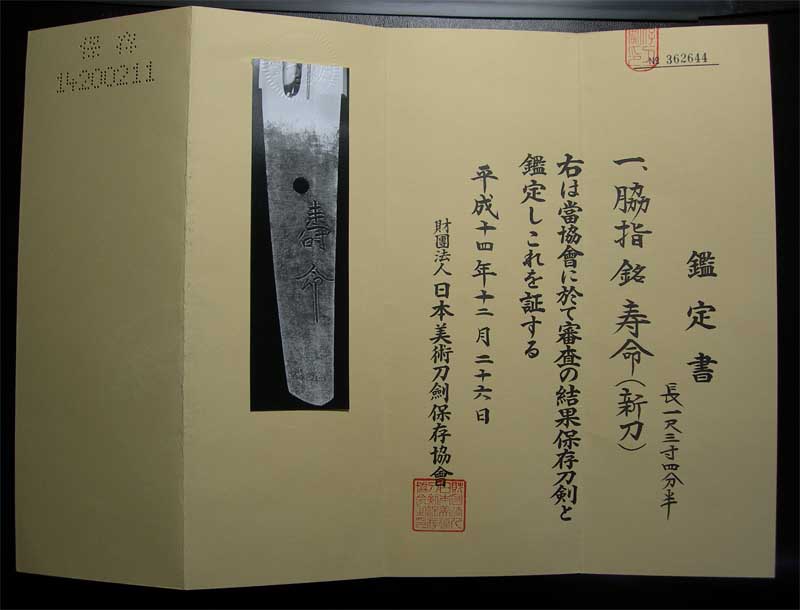 № 362644
鑑定書
一、脇指 銘 寿命(新刀)
長一尺三寸四分半
右は當協會に於て審査の結果保存刀剣と
鑑定しこれを証する
平成十四年十二月二十六日
財團法人 日本美術刀劍保存協會
壽命
14200211